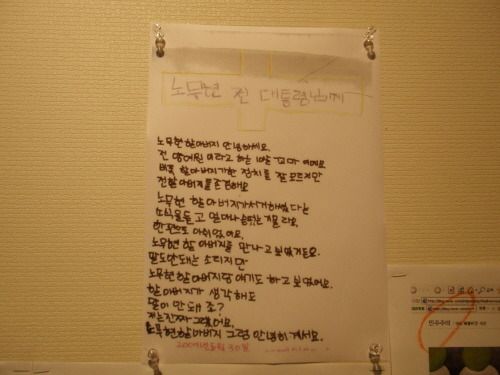 노무현 전 대통령님에게
노무현 할아버지 안녕하세요.
전 라고 하는 10살 꼬마 예예요
비록 할아버지가한 정치를 잘 모르지만
전할아버지를존경해요
노무현 할아버지가서거하셨다는
소식을듣고 얼마나 라요.
한편으로 아쉬웠어요.
노무현 할 아버지를 만나고 보였거든요.
말도안돼는 소리지만
노무현할아버지랑 얘기도 하고 보였어요.
할아버지가 생각해도
말이 안돼 죠?
저는진짜 그랬어요.
노무현할아버지 그럼 안녕히계세요.
30일
민주주의